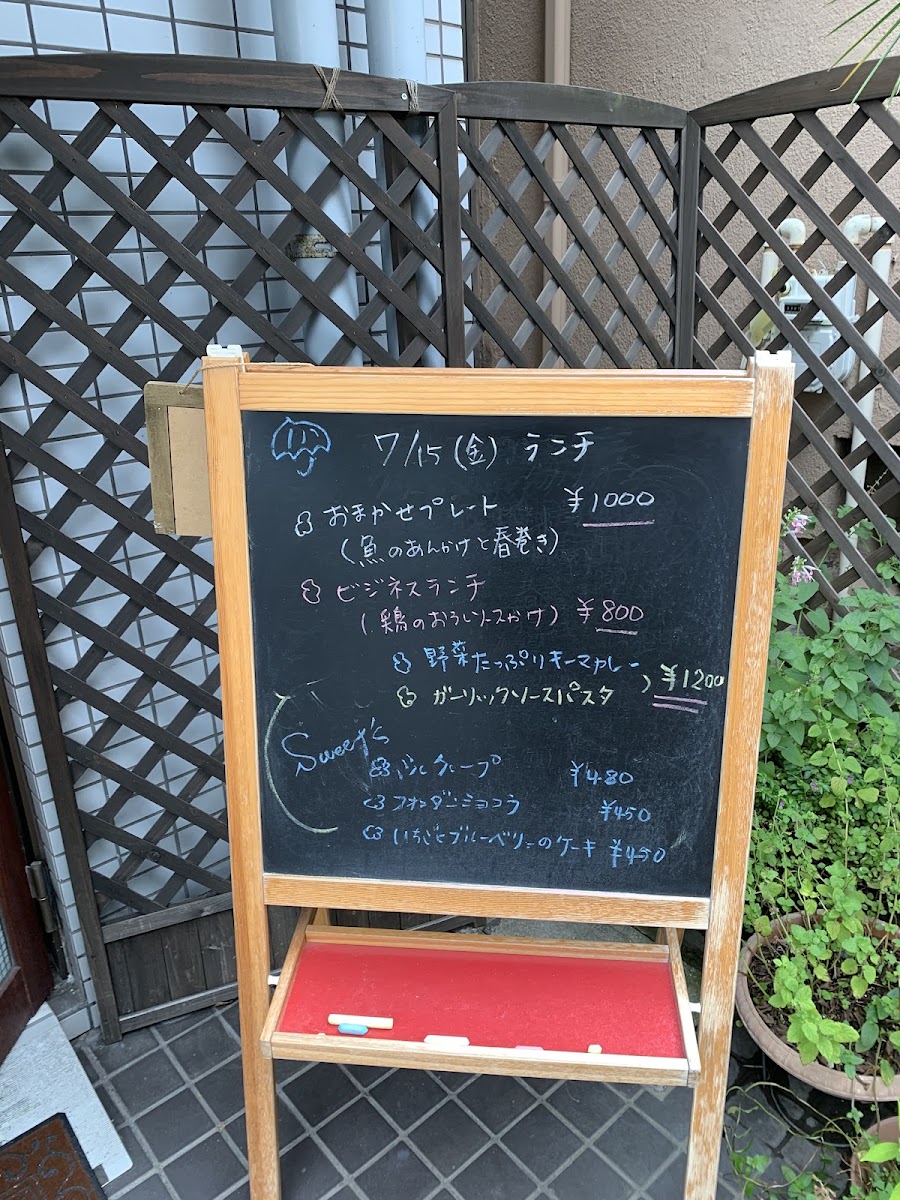 7/15(金) ランチ
おまかせプレート ¥1000
(魚のあんかけと春巻き)
ビジネスランチ
(鶏のおろしソースかけ) ¥800
野菜たっぷりキーマカレー
ガーリックソースパスタ ) ¥1200
Sweet's
クレープ ¥480
フォンダンショコラ ¥450
いちごとブルーベリーのケーキ ¥450